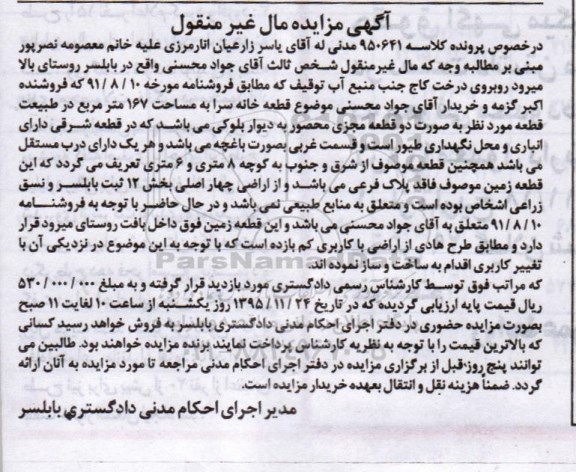 آگهی مزایده مال غیر منقول
درخصوص پرونده کلاسه ۹۵۰۶۴۱ مدنی له آقای یاسر زارعیان انارمرزی علیه خانم معصومه نصرپور
مبنی بر مطالبه وجه که مال غیرمنقول شخص ثالث آقای جواد محسنی واقع در بابلسر روستای بالا
میرود روبروی درخت کاج جنب منبع آب توقیف که مطابق فروشنامه مورخه ۹۱/۸/۱۰ که فروشنده
اکبر گزمه و خریدار آقای جواد محسنی موضوع قطعه خانه سرا به مساحت ۱۶۷ متر مربع در طبیعت
قطعه مورد نظر به صورت دو قطعه مجزی محصور به دیوار بلوکی می باشد که در قطعه شرقی دارای
انباری و محل نگهداری طیور است و قسمت غربی بصورت باغچه می باشد و هر یک دارای درب مستقل
می باشد همچنین قطعه موصوف از شرق و جنوب به کوچه ۸ متری و ۶ متری تعریف می گردد که این
قطعه زمین موصوف فاقد پلاک فرعی می باشد و از اراضی چهار اصلی بخش ۱۲ ثبت بابلسر و نسق
زراعی اشخاص بوده است و متعلق به منابع طبیعی نمی باشد و در حال حاضر با توجه به فروشنامه
۹۱/۸/۱۰ متعلق به آقای جواد محسنی می باشد و این قطعه زمین فوق داخل بافت روستای میرود قرار
دارد و مطابق طرح هادی از اراضی با کاربری کم بازده است که با توجه به این موضوع در نزدیکی آن با
تغییر کاربری اقدام به ساخت و ساز نموده اند.
که مراتب فوق توسط کارشناس رسمی دادگستری مورد بازدید قرار گرفته و به مبلغ ۵۳۰/۰۰۰/۰۰۰
ریال قیمت پایه ارزیابی گردیده که در تاریخ ۱۳۹۵/۱۱/۲۴ روز یکشنبه از ساعت ۱۰ لغایت ۱۱ صبح
بصورت مزایده حضوری در دفتر اجرای احکام مدنی دادگستری بابلسر به فروش خواهد رسید کسانی
که بالاترین قیمت را با توجه به نظریه کارشناس پرداخت نمایند برنده مزایده خواهند بود. طالبین می
توانند پنج روز قبل از برگزاری مزایده در دفتر اجرای احکام مدنی مراجعه تا مورد مزایده به آنان ارائه
گردد. ضمناً هزینه نقل و انتقال بعهده خریدار مزایده است.
مدیر اجرای احکام مدنی دادگستری بابلسر
ParsNamadData